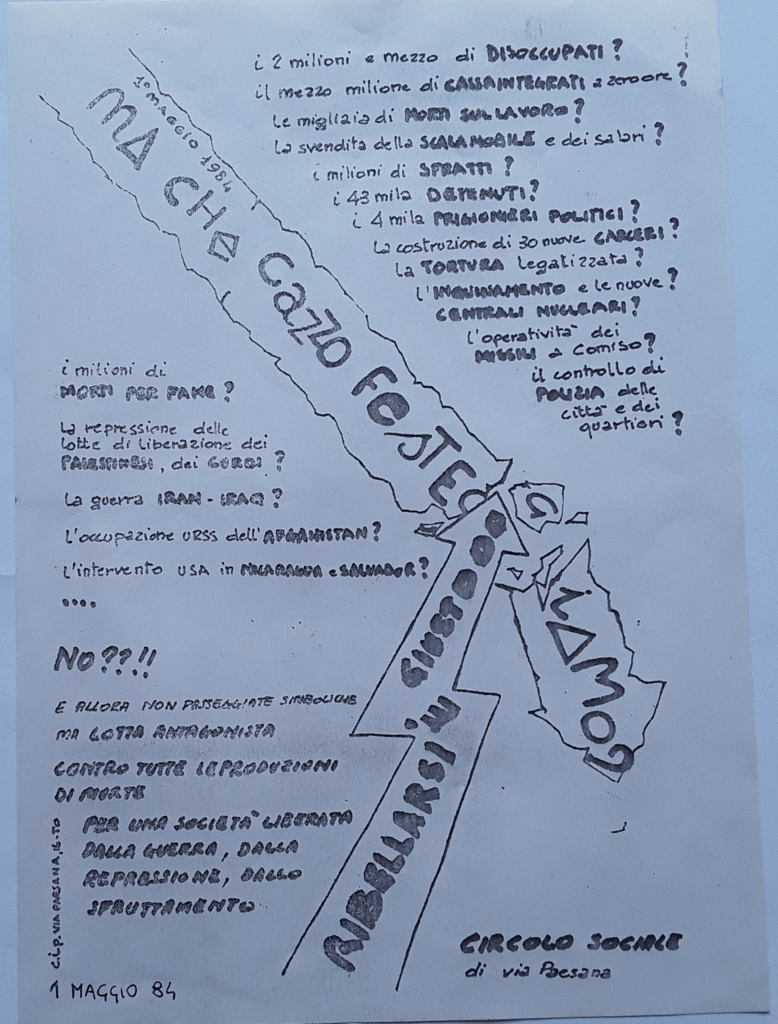 1º MAGGIO 1984
MA CHE CAZZO FESTEGGIAMO?
i 2 milioni e mezzo di DISOCCUPATI?
il mezzo milione di CASSAINTEGRATI a zero ore?
le migliaia di MORTI SUL LAVORO?
la svendita della SCALA MOBILE e dei salari?
i milioni di SFRATTI?
i 43 mila DETENUTI?
i 4 mila PRIGIONIERI POLITICI?
la costruzione di 30 nuove CARCERI?
la TORTURA legalizzata?
l'INQUINAMENTO e le nuove
CENTRALI NUCLEARI?
l'operatività dei
MISSILI a Comiso?
il controllo di
POLIZIA delle
città e dei
quartieri?
i milioni di
MORTI PER FAME?
la repressione delle
lotte di liberazione dei
PALESTINESI, dei CURDI?
la guerra IRAN-IRAQ?
l'occupazione URSS dell'AFGANISTAN?
l'intervento USA in NICARAGUA e SALVADOR?
....
NO??!!
E ALLORA NON PASSEGGIATE SIMBOLICHE
MA LOTTA ANTAGONISTA
CONTRO TUTTE LE PRODUZIONI
DI MORTE
PER UNA SOCIETÀ LIBERATA
DALLA GUERRA, DALLA
REPRESSIONE, DALLO
SFRUTTAMENTO
RIBELLARSI È GIUSTO
c.i.p. VIA PAESANA, 16-TO
1 MAGGIO 84
CIRCOLO SOCIALE
di via Paesana